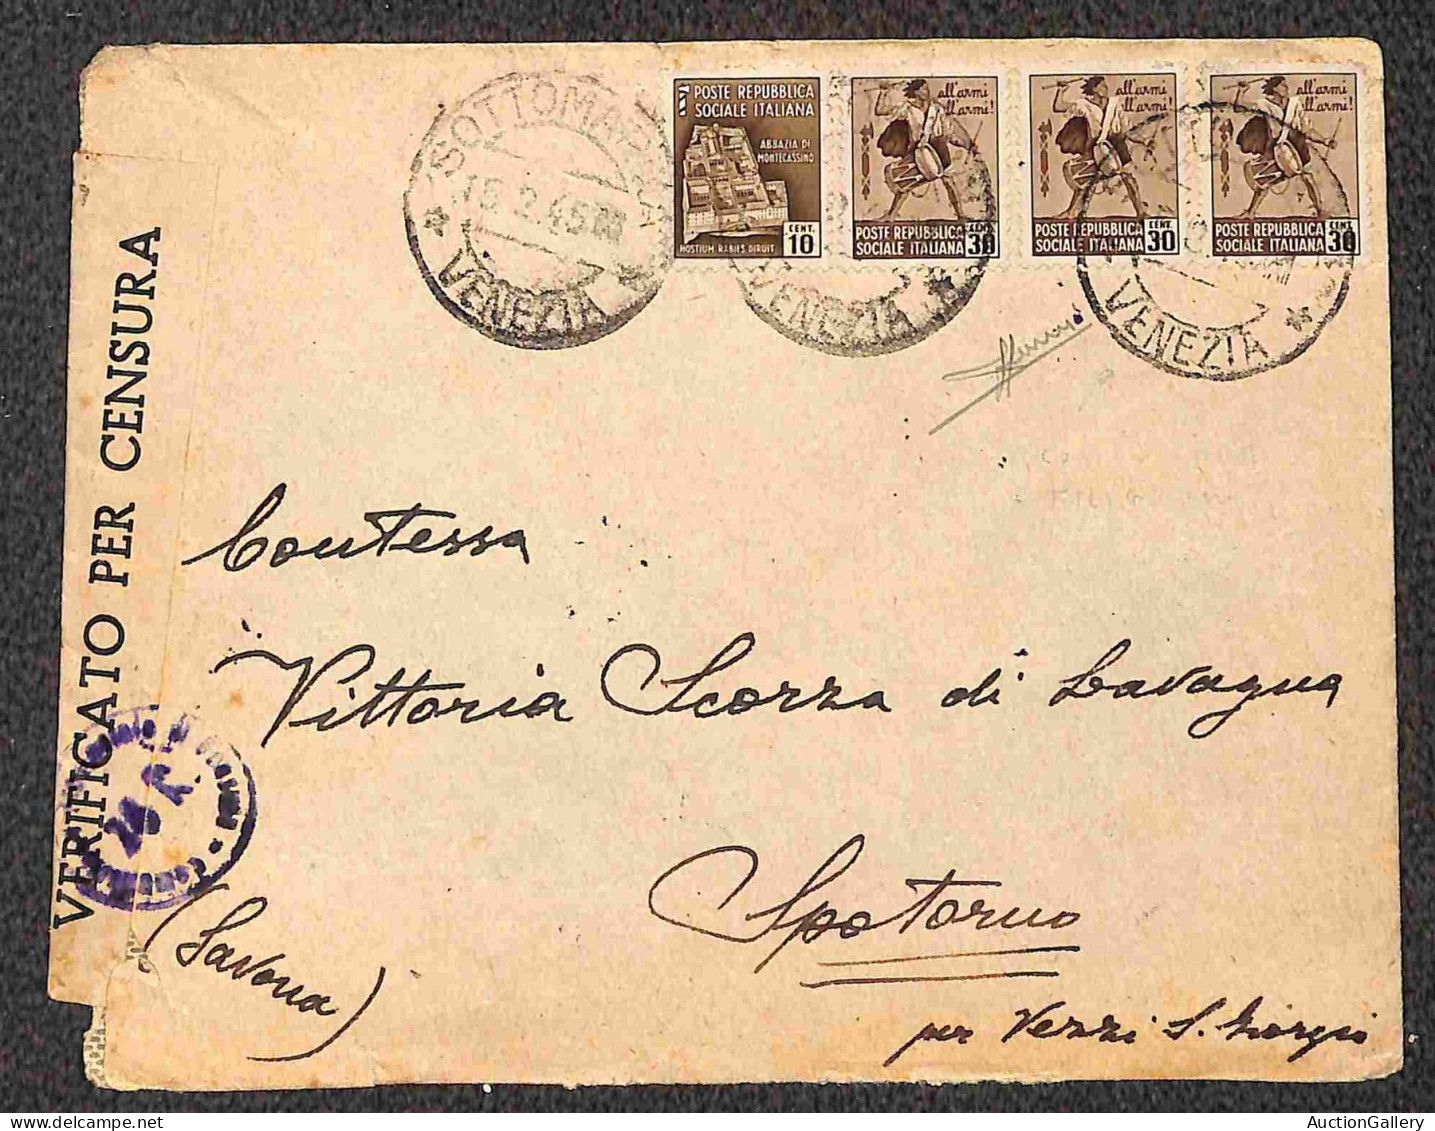 SOTTOMARINA
15.2.45
* VENEZIA *
POSTE REPUBBLICA
SOCIALE ITALIANA
ABBAZIA DI
MONTECASSINO
CENT.
10
HOSTIUM RABIES DIRUIT
all'armi
all'armi!
POSTE REPUBBLICA
SOCIALE ITALIANA
CENT.
30
all'armi
all'armi!
POSTE REPUBBLICA
SOCIALE ITALIANA
CENT.
30
all'armi
all'armi!
POSTE REPUBBLICA
SOCIALE ITALIANA
30
VENEZIA *
VENEZIA *
VERIFICATO PER CENSURA
Contessa
Vittoria Scozza di Lavagna
Spotorno
(Savona)
per Vezzi S. Giorgio
AuctionGallery